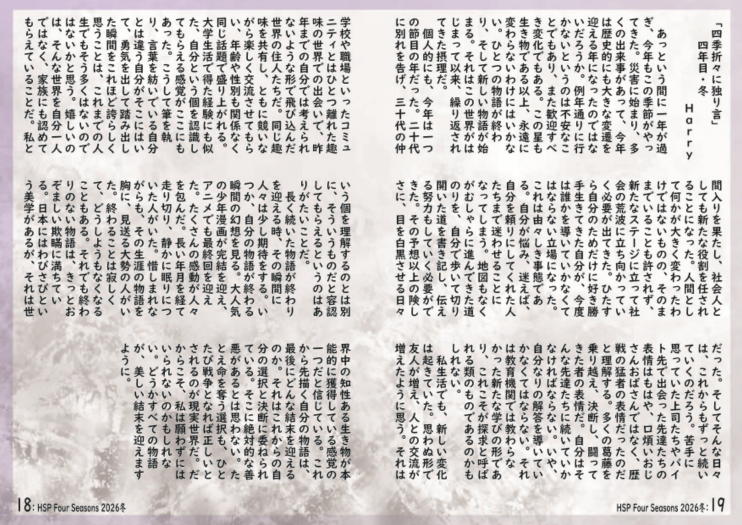 「四季折々に独り言」
四年目・冬
Harry
あっという間に一年が過
ぎ、今年もこの季節がやっ
てきた。災害に始まり、多
くの出来事があって、今年
は歴史的にも大きな変遷を
迎える年になったのではな
いだろうか。例年通りに行
かないというのは不安なこ
とでもあり、また歓迎すべ
き変化でもある。この星も
生き物である以上、永遠に
変わらないわけにはいかな
い。ひとつの物語が終わ
り、そして新しい物語が始
まる。それはこの世界がは
じまって以来、繰り返され
てきた摂理だ。
個人的にも、今年は一つ
の節目の年だった。二十代
に別れを告げ、三十代の仲
間入りを果たし、社会人と
しても新たな役割を任され
ることになった。人間とし
て何かが大きく変わったわ
けではないものの、そのま
までいることも許されず、
新たなステージに立って社
会の荒波に立ち向かってい
く必要が出てきた。ひたす
ら自分のためだけに好き勝
手生きてきた自分が、今度
は誰かを導いていかなくて
はならない立場になった。
これは由々しき事態であ
る。自分が悩み、迷えば、
自分を頼りにしてくれた人
たちまで迷わせることに
なってしまう。地図もなく
がむしゃらに進んできた道
のりを、自分で歩いて切り
開いた道を書き記し、伝え
る努力もしていく必要がで
きた。その予想以上の険し
さに、目を白黒させる日々
だった。そしてそんな日々
は、これからもずっと続い
ていくのだろう。苦手に
思っていた上司たちやバイ
ト先で出会った先達たちの
表情はもはや、口煩いおじ
さんおばさんではなく、歴
戦の猛者の表情だったのだ
と理解する。多くの葛藤を
乗り越え、決断し、闘って
きた者の表情だ。自分はそ
んな先達たちに続いていか
なければならない。いや、
自分なりの解答を導いてい
かなくてはならない。それ
は教育機関では教わらな
かった新たな学びの形であ
り、これこそが探求と呼ば
れる類のものであるのかも
しれない。
私生活でも、新しい変化
は起きていた。思わぬ形で
友人が増え、人との交流が
増えたように思う。それは
HSP Four Seasons 2026冬:19
学校や職場といったコミュ
ニティとはひとつ離れた趣
味の世界での出会いで、昨
年までの自分では考えられ
ないような形で飛び込んだ
世界の住人たちだ。同じ趣
味を共有し、ともに競いな
がら楽しく交流させてもら
い、年齢や性別も関係なく
同じ話題で盛り上がれる。
大学生活で得た経験にも似
た、自分という個を認識し
てもらえる感覚がここにも
あった。こうして筆を執
り、言葉を紡いでいる自分
とは違う自分がそこにはい
て、勇気を出して踏み出し
た瞬間をこれほど誇らしく
思うことは、これまでの人
生でもそう多くはないので
はないかと思う。嬉しいの
は、そんな世界を自分一人
ではなく、家族にも認めて
もらえていることだ。私と
いう個を理解するのとは別
に、そういうものだと容認
してもらえるというのはあ
りがたいことだ。
長く続いた物語が終わり
を迎える時、その瞬間に
人々は少し期待をする。い
つか、自分の物語が終わる
瞬間の幻想を見る。大人気
の少年漫画が完結を迎え、
アニメでも最終回を迎え
た。たくさんの感動が人々
を包んだ。長い年月を経て
走り切り、静かに眠りにつ
いた人がいた。惜しまれな
がらも、その生涯の物語を
胸に、見送る大勢の人がい
た。終わることは寂しく
て、どうしようもなくなる
こともある。それでも終わ
りのない物語は、きっとお
ぞましい欺瞞に満ちてい
る。日本にはわびさびとい
う美学があるが、それは世
界中の知性ある生き物が本
能的に獲得している感覚の
一つだと信じている。これ
から先描く自分の物語は、
最後にどんな結末を迎える
のか。それはこれからの自
分の選択と決断に委ねられ
ている。そこに絶対的な善
悪があるとは思わない。た
とえ命を奪う選択も、ひと
たび戦争となれば正しいと
されるのが現実世界だ。だ
からこそ、私は願わずには
いられないのかもしれな
い。どうかすべての物語
が、美しい結末を迎えます
ように。
18:HSP Four Seasons 2026冬